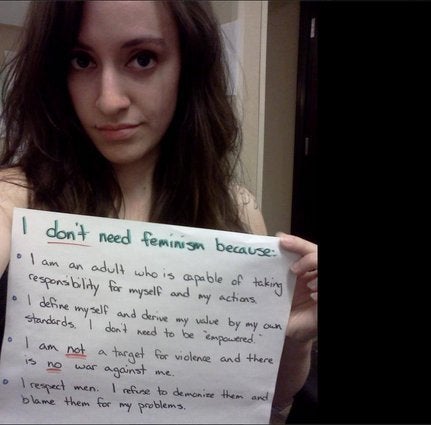 I don't need feminism because:
• I am an adult who is capable of taking
responsibility for myself and my actions.
• I define myself and derive my value by my own
standards. I don't need to be "empowered."
• I am not a target for violence and there
is no war against me.
• I respect men. I refuse to demonize them and
blame them for my problems.